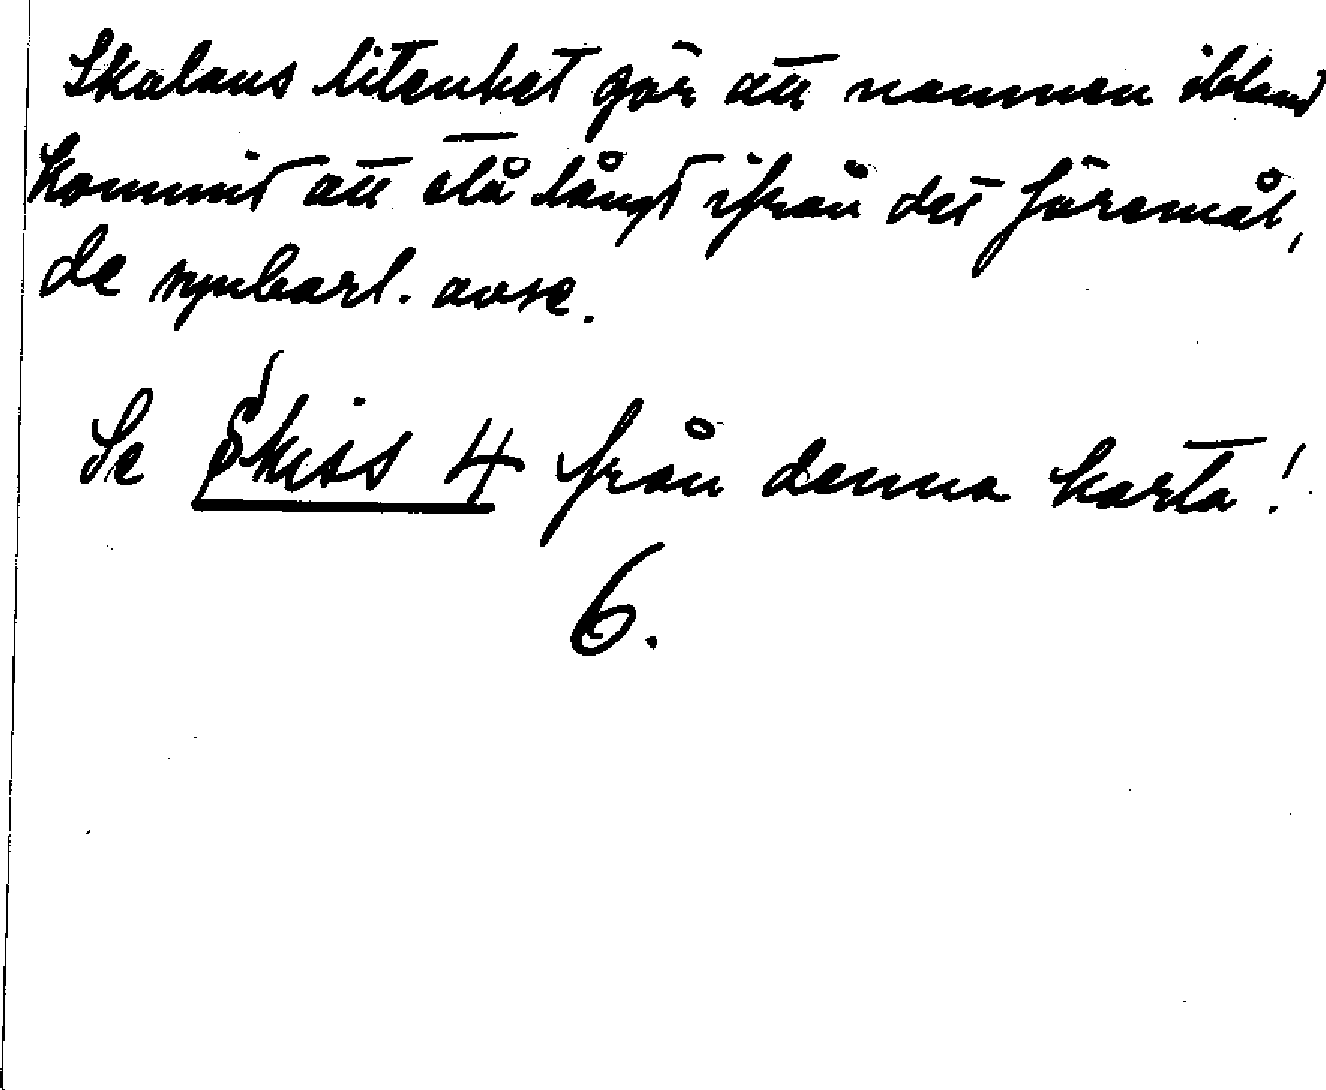 Skalans litenhet gör att namnen ibland
kommit att stå långt ifrån det föremål,
de synbarl. avse.
Se Skiss 4 från denna karta!
6.